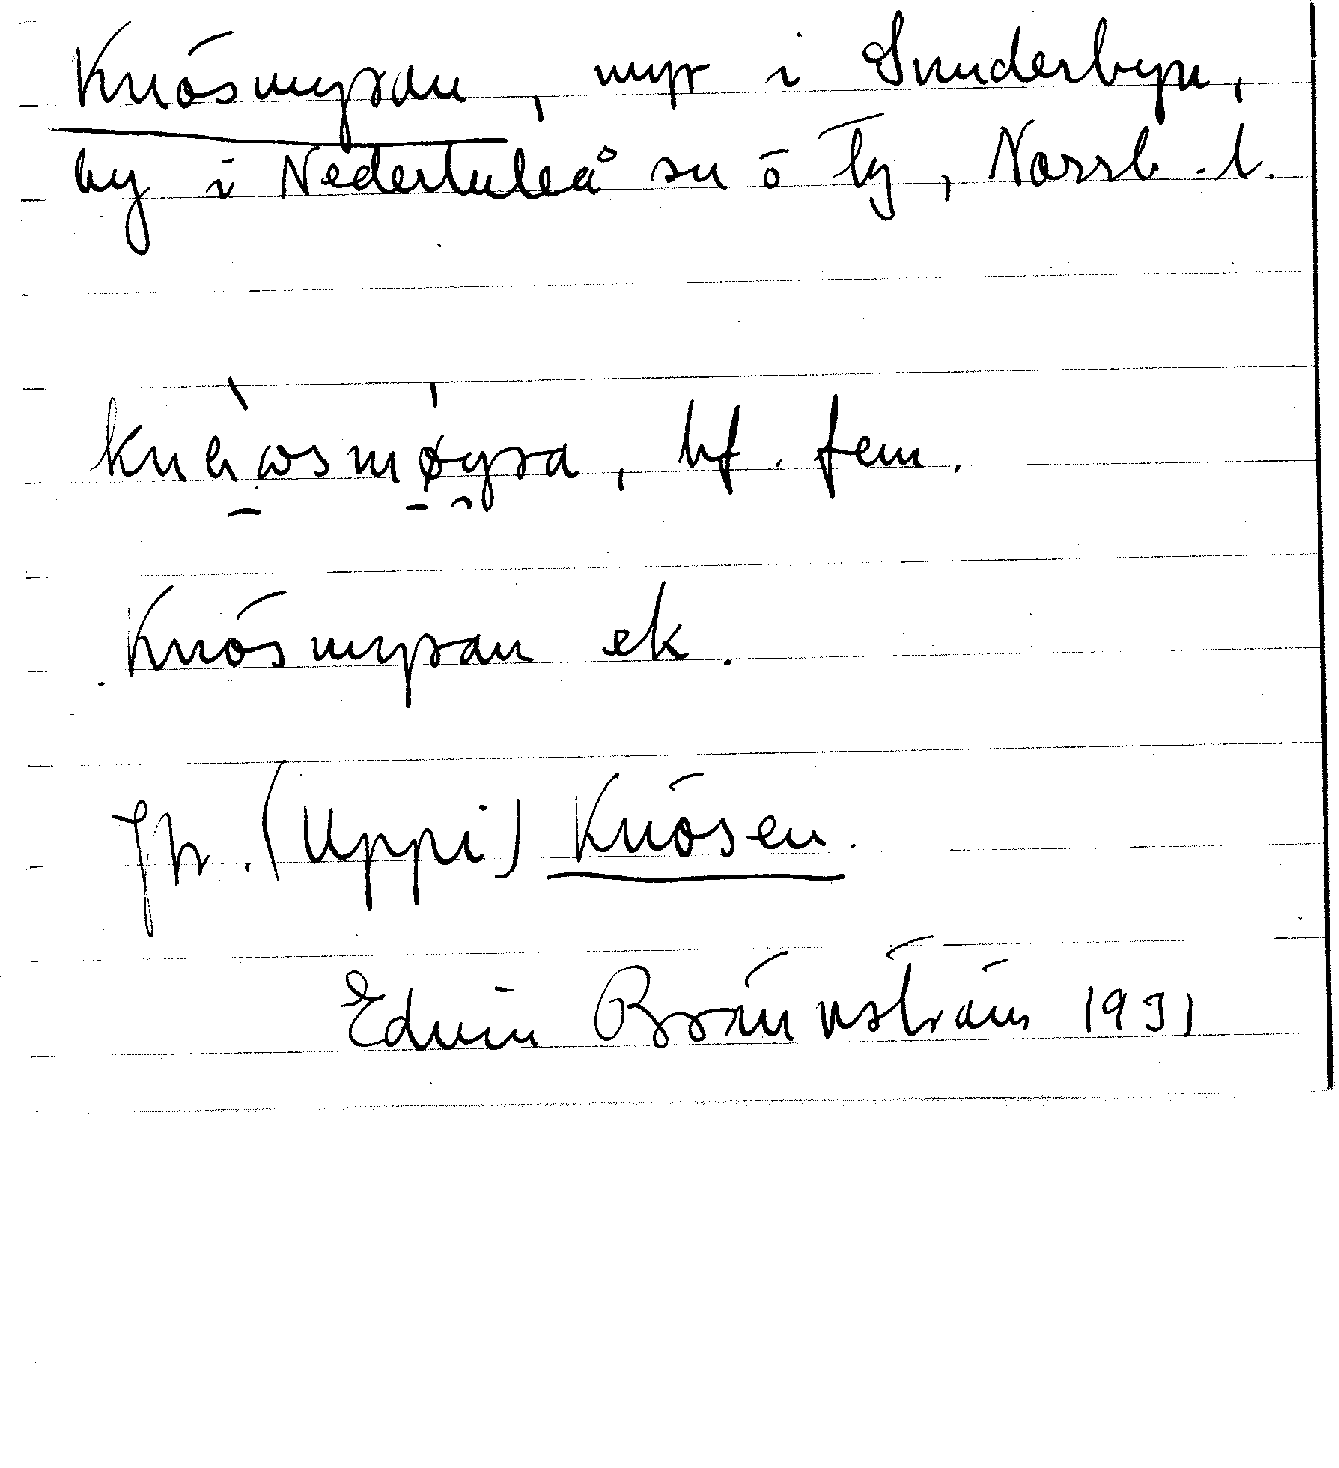 Knösmyran, myr i Sunderbyn,
by i Nederluleå sn ö tg, Norrb. l.
bf. fem.
Knösmyran ek.
Jfr. (Uppi) Knösen.
Edvin Brännström 1931